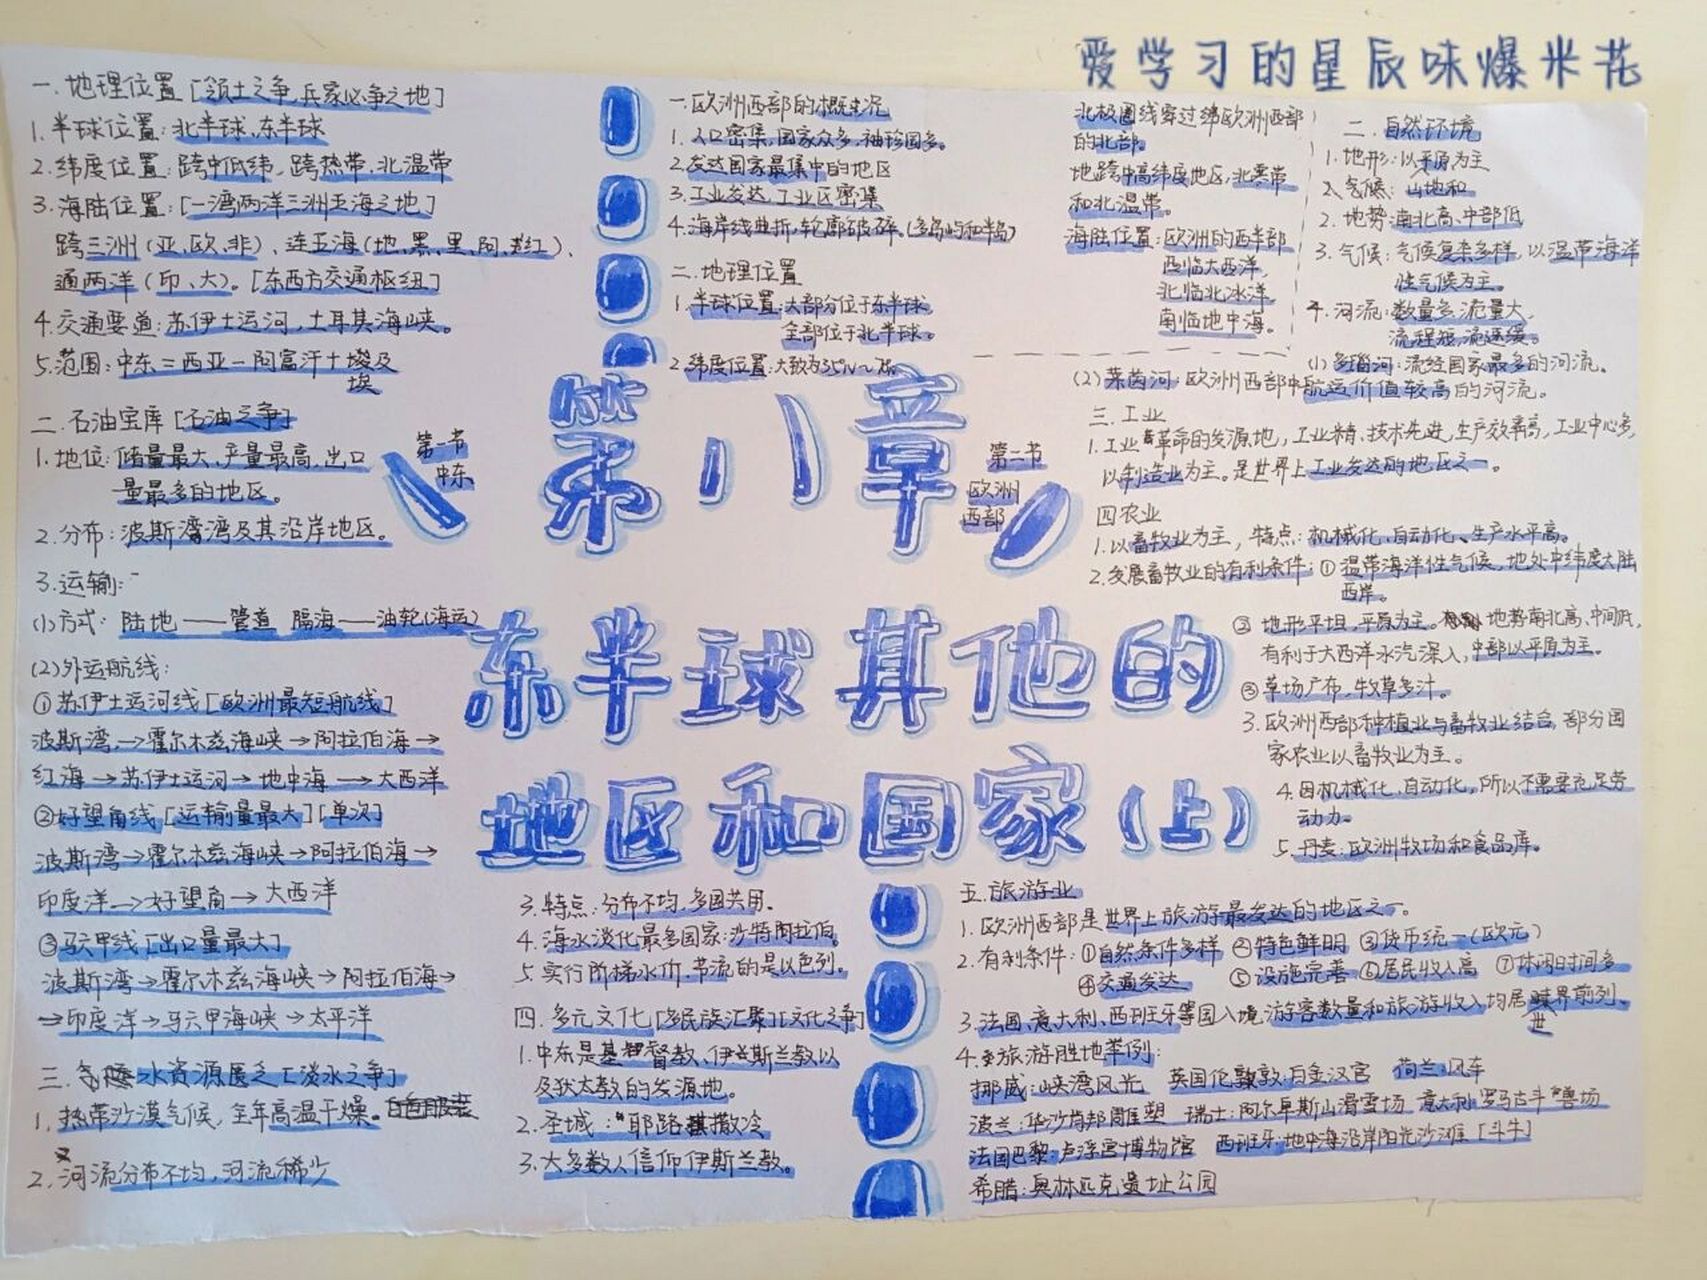 爱学习的星辰味爆米花
第八章
东半球其他的
地区和国家(上)
第一节
中东
一.地理位置[领土之争,兵家必争之地]
1.半球位置:北半球、东半球
2.纬度位置:跨中低纬,跨热带、北温带
3.海陆位置:[一湾两洋三洲五海之地]
跨三洲(亚、欧、非)、连五海(地、黑、里、阿、红)、
通两洋(印、大)。[东西方交通枢纽]
4.交通要道:苏伊士运河,土耳其海峡。
5.范围:中东=西亚-阿富汗+埃及
埃
二.石油宝库[石油之争]
1.地位:储量最大、产量最高、出口
量最多的地区。
2.分布:波斯湾湾及其沿岸地区。
3.运输:
(1)方式:陆地——管道 隔海——油轮(海运)
(2)外运航线:
①苏伊士运河线[欧洲最短航线]
波斯湾→霍尔木兹海峡→阿拉伯海→
红海→苏伊士运河→地中海→大西洋
②好望角线[运输量最大][单次]
波斯湾→霍尔木兹海峡→阿拉伯海→
印度洋→好望角→大西洋
③马六甲线[出口量最大]
波斯湾→霍尔木兹海峡→阿拉伯海→
→印度洋→马六甲海峡→太平洋
三.水资源匮乏[淡水之争]
1.热带沙漠气候,全年高温干燥。
2.河流分布不均,河流稀少
3.特点:分布不均,多国共用。
4.海水淡化最多国家:沙特阿拉伯。
5.实行阶梯水价、节流的是以色列。
四.多元文化[多民族汇聚][文化之争]
1.中东是基督教、伊兰斯兰教以
及犹太教的发源地。
2.圣城:"耶路撒冷
3.大多数人信仰伊斯兰教。
第二节
欧洲
西部
一.欧洲西部的概况
1.人口密集,国家众多,袖珍国多。
2.发达国家最集中的地区
3.工业发达,工业区密集
4.海岸线曲折,轮廓破碎。(多岛屿和半岛)
二.地理位置
1.半球位置:大部分位于东半球,
全部位于北半球。
2.纬度位置:大致为35°N~
北极圈线穿过欧洲西部
的北部。
地跨中高纬度地区,北寒带
和北温带。
海陆位置:欧洲的西半部
西临大西洋,
北临北冰洋
南临地中海。
二.自然环境
1.地形:以平原为主
2、气候:山地和
2.地势:南北高、中部低
3.气候:气候复杂多样,以温带海洋
性气候为主。
4.河流:数量多,流量大,
流程短,流速缓。
(1)多瑙河:流经国家最多的河流。
(2)莱茵河:欧洲西部中航运价值较高的河流。
三.工业
1.工业革命的发源地,工业精、技术先进,生产效率高,工业中心多,
以制造业为主。是世界上工业发达的地区之一。
四农业
1.以畜牧业为主,特点:机械化、自动化、生产水平高。
2.发展畜牧业的有利条件:①温带海洋性气候,地处中纬度大陆
西岸。
② 地形平坦,平原为主。地势南北高、中间低,
有利于大西洋水汽深入,中部以平原为主。
③草场广布,牧草多汁。
3.欧洲西部种植业与畜牧业结合,部分国
家农业以畜牧业为主。
4.因机械化、自动化,所以不需要充足劳
动力。
5.丹麦:欧洲牧场和食品库。
五.旅游业
1.欧洲西部是世界上旅游最发达的地区之一。
2.有利条件:①自然条件多样 ②特色鲜明 ③货币统一(欧元)
④交通发达 ⑤设施完善 ⑥居民收入高 ⑦休闲时间多
3.法国、意大利、西班牙等国入境游客数量和旅游收入均居世界前列。
4.旅游胜地举例:
挪威:峡湾风光 英国伦敦:白金汉宫 荷兰:风车
波兰:华沙肖邦雕塑 瑞士:阿尔卑斯山滑雪场 意大利:罗马古斗兽场
法国巴黎:卢浮宫博物馆 西班牙:地中海沿岸阳光沙滩[斗牛]
希腊:奥林匹克遗址公园